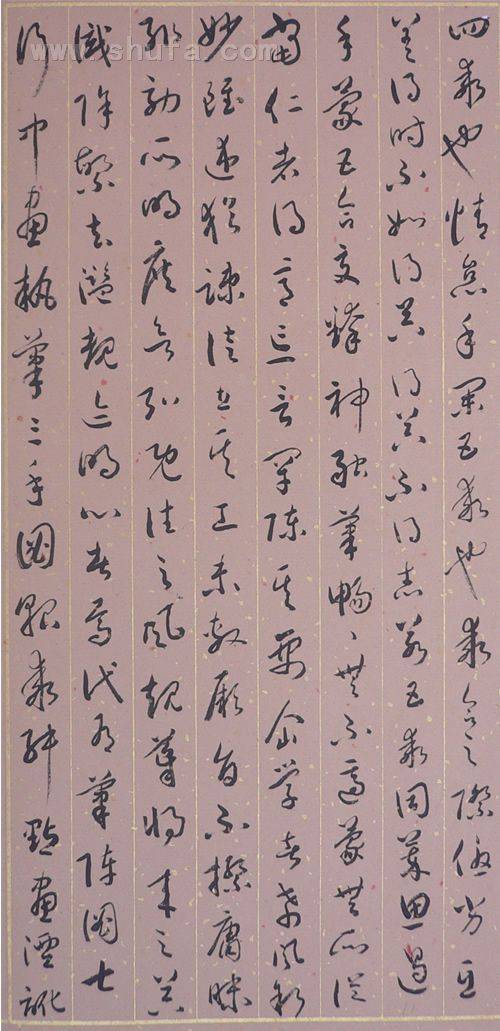 四乖也情怠手闌五乖也乖合之際優劣互
差得時不如得器得器不得志若五乖同萃思遏
手蒙五合交臻神融筆暢暢無不適蒙無所從
當仁者得意忘言罕陳其要企學者希風敘
妙雖述猶疎徒立其工未敷厥旨不揆庸昧
輒効所明庶欲弘既往之風規導將來之器
識除繁去濫覩迹明心者焉代有筆陣圖七
行中畫執筆三手圖貌乖舛點畫湮訛
www.shufa.com